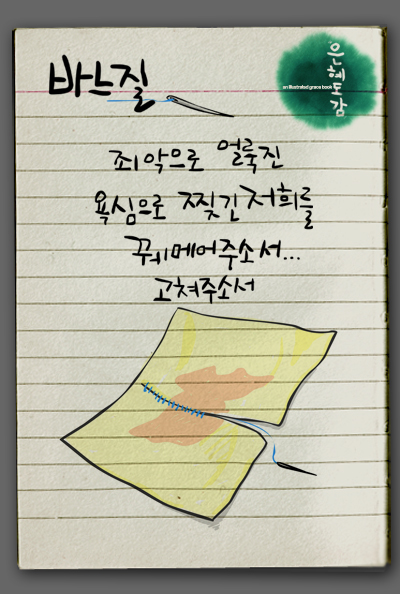 바느질
은혜도감
an illustrated grace book
죄악으로 얼룩진
욕심으로 찢긴 저희를
꿰메어주소서...
고쳐주소서